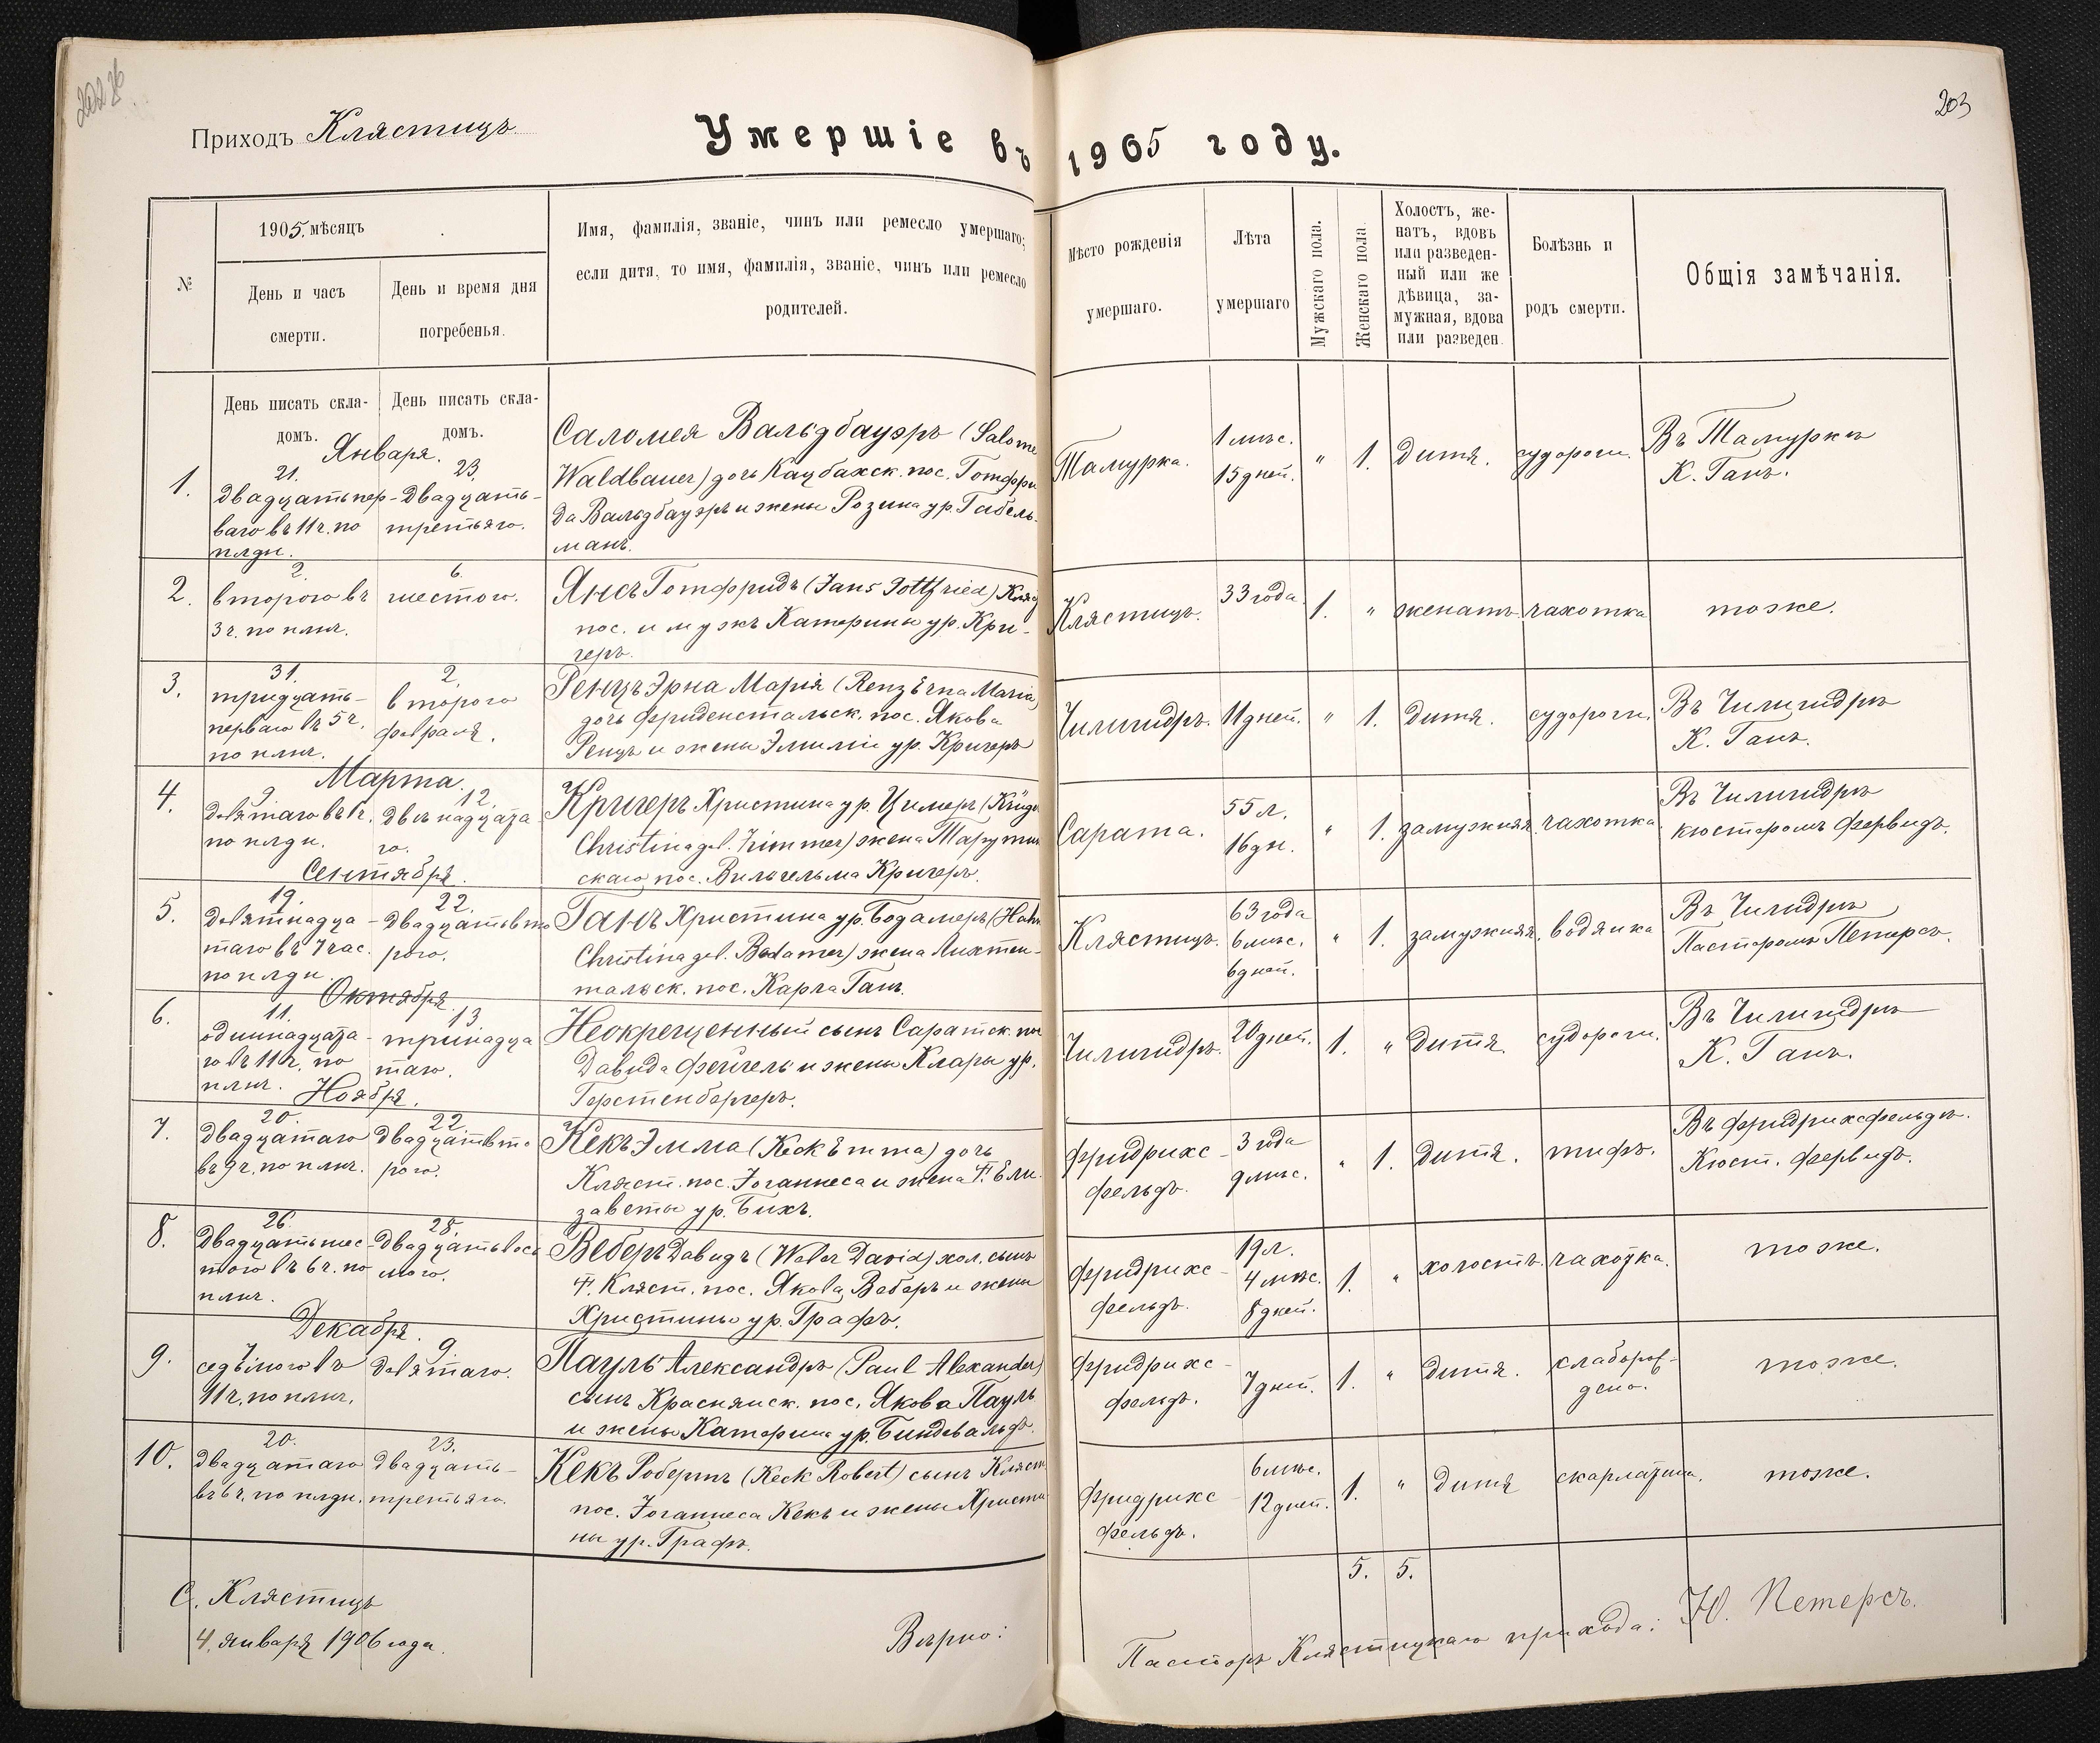 Приходъ Клястицъ
Умершіе въ 1905 году.
203
№
1905. мѣсяцъ
День и часъ
смерти.
День и время дня
погребенья.
Имя, фамилія, званіе, чинъ или ремесло умершаго;
если дитя, то имя, фамилія, званіе, чинъ или ремесло
родителей.
Мѣсто рожденія
умершаго.
Лѣта
умершаго
Мужскаго пола.
Женскаго пола
Холостъ, же-
натъ, вдовъ
или разведен-
ный или же
дѣвица, за-
мужная, вдова
или разведен.
Болѣзнь и
родъ смерти.
Общія замѣчанія.
День писать скла-
домъ.
День писать скла-
домъ.
Января.
1.
21.
двадцатьпер-
ваго въ 11 ч. по
плдн.
23.
двадцать-
третьяго.
Саломея Вальдбауэръ (Salome
Waldbauer) дочь Кацбахск. пос. Готфри
да Вальдбауэръ и жены Розина ур. Габель-
манъ.
Тамурка.
1 мѣс.
15 дней.
" 1. дитя. судороги.
Въ Тамуркѣ
К. Ганъ.
2.
2.
второго въ
3 ч. по плнч.
6.
шестого.
Янсъ Готфридъ (Jans Gottfried) Кляс
пос. и мужъ Катерины ур. Кри-
геръ.
Клястицъ.
33 года.
1. " женатъ. чахотка
тоже.
3.
31.
тридцать-
перваго въ 5 ч.
по плнч.
2.
второго
февраля.
Ренцъ Эрна Марія (Renz Erna Maria)
дочь Фриденстальск. пос. Якова
Ренцъ и жены Эмиліи ур. Кригеръ
Чилигидръ.
11 дней.
" 1. дитя. судороги.
Въ Чилигидрѣ
К. Ганъ.
Марта.
4.
9.
девятаго въ 1 ч.
по плдн.
12.
двѣнадцата
го.
Кригеръ Христина ур. Цимеръ (Krüger
Christina gel. Zimmer) жена Тарутин
скаго пос. Вильгельма Кригеръ.
Сарата.
55 л.
16 дн.
" 1. замужняя. чахотка.
Въ Чилигидрѣ
кюстеромъ Фервидъ.
Сентября.
5.
19.
девятнадца-
таго въ 7 час.
по плдн.
22.
двадцатьвто
рого.
Ганъ Христина ур. Бодамеръ (Hahn
Christina gel. Bodamer) жена Лихтен-
тальск. пос. Карла Ганъ.
Клястицъ.
63 года
6 мѣс.
6 дней.
" 1. замужняя. водянка
Въ Чилидрѣ
Пасторомъ Петерсъ.
Октября.
6.
11.
одиннадцата-
го въ 11 ч. по
плнч.
13
тринадца
таго.
Некрещенный сынъ Саратск. пос
Давида Фейгель и жены Клары ур.
Герстенбергеръ.
Чилигидръ.
20 дней.
1. " дитя. судороги.
Въ Чилигидрѣ
К. Ганъ.
Ноября.
7.
20.
двадцатаго
въ 9 ч. по плнч.
22.
двадцатьвто
рого.
Кекъ Эмма (Keck Emma) дочь
Кляст. пос. Іоганнеса и жена †. Ели-
заветы ур. Бихъ.
Фридрихс-
фельдъ.
3 года
9 мѣс.
" 1. дитя. тифъ.
Въ Фридрихсфельдѣ.
Кюст. Фервидъ.
8.
26.
двадцатьшес-
того въ 6 ч. по
плнч.
28.
двадцатьвось
мого.
Веберъ Давидъ (Weber David) хол. сынъ
†. Кляст. пос. Якова Веберъ и жены
Христины ур. Графъ.
Фридрихс-
фельдъ.
19 л.
4 мѣс.
8 дней.
1. " холостъ. чахотка.
тоже.
Декабря.
9.
7.
седьмого въ
11 ч. по плнч.
9.
девятаго.
Пауль Александръ (Paul Alexander)
сынъ Краснянск. пос. Якова Пауль
и жены Катерина ур. Биндевальдъ.
Фридрихс-
фельдъ.
7 дней.
1. " дитя. слаборож-
дено.
тоже.
10.
20.
двадцатаго
въ 6 ч. по плдн.
23.
двадцать-
третьяго.
Кекъ Робертъ (Keck Robert) сынъ Кляст
пос. Іоганнеса Кекъ и жены Христи
ны ур. Графъ.
Фридрихс
фельдъ.
6 мѣс.
12 дней.
1. " дитя скарлатина.
тоже.
5. 5.
С. Клястицъ
4. января 1906 года.
Вѣрно:
Пасторъ Клястицкаго прихода: Ю. Петерсъ.